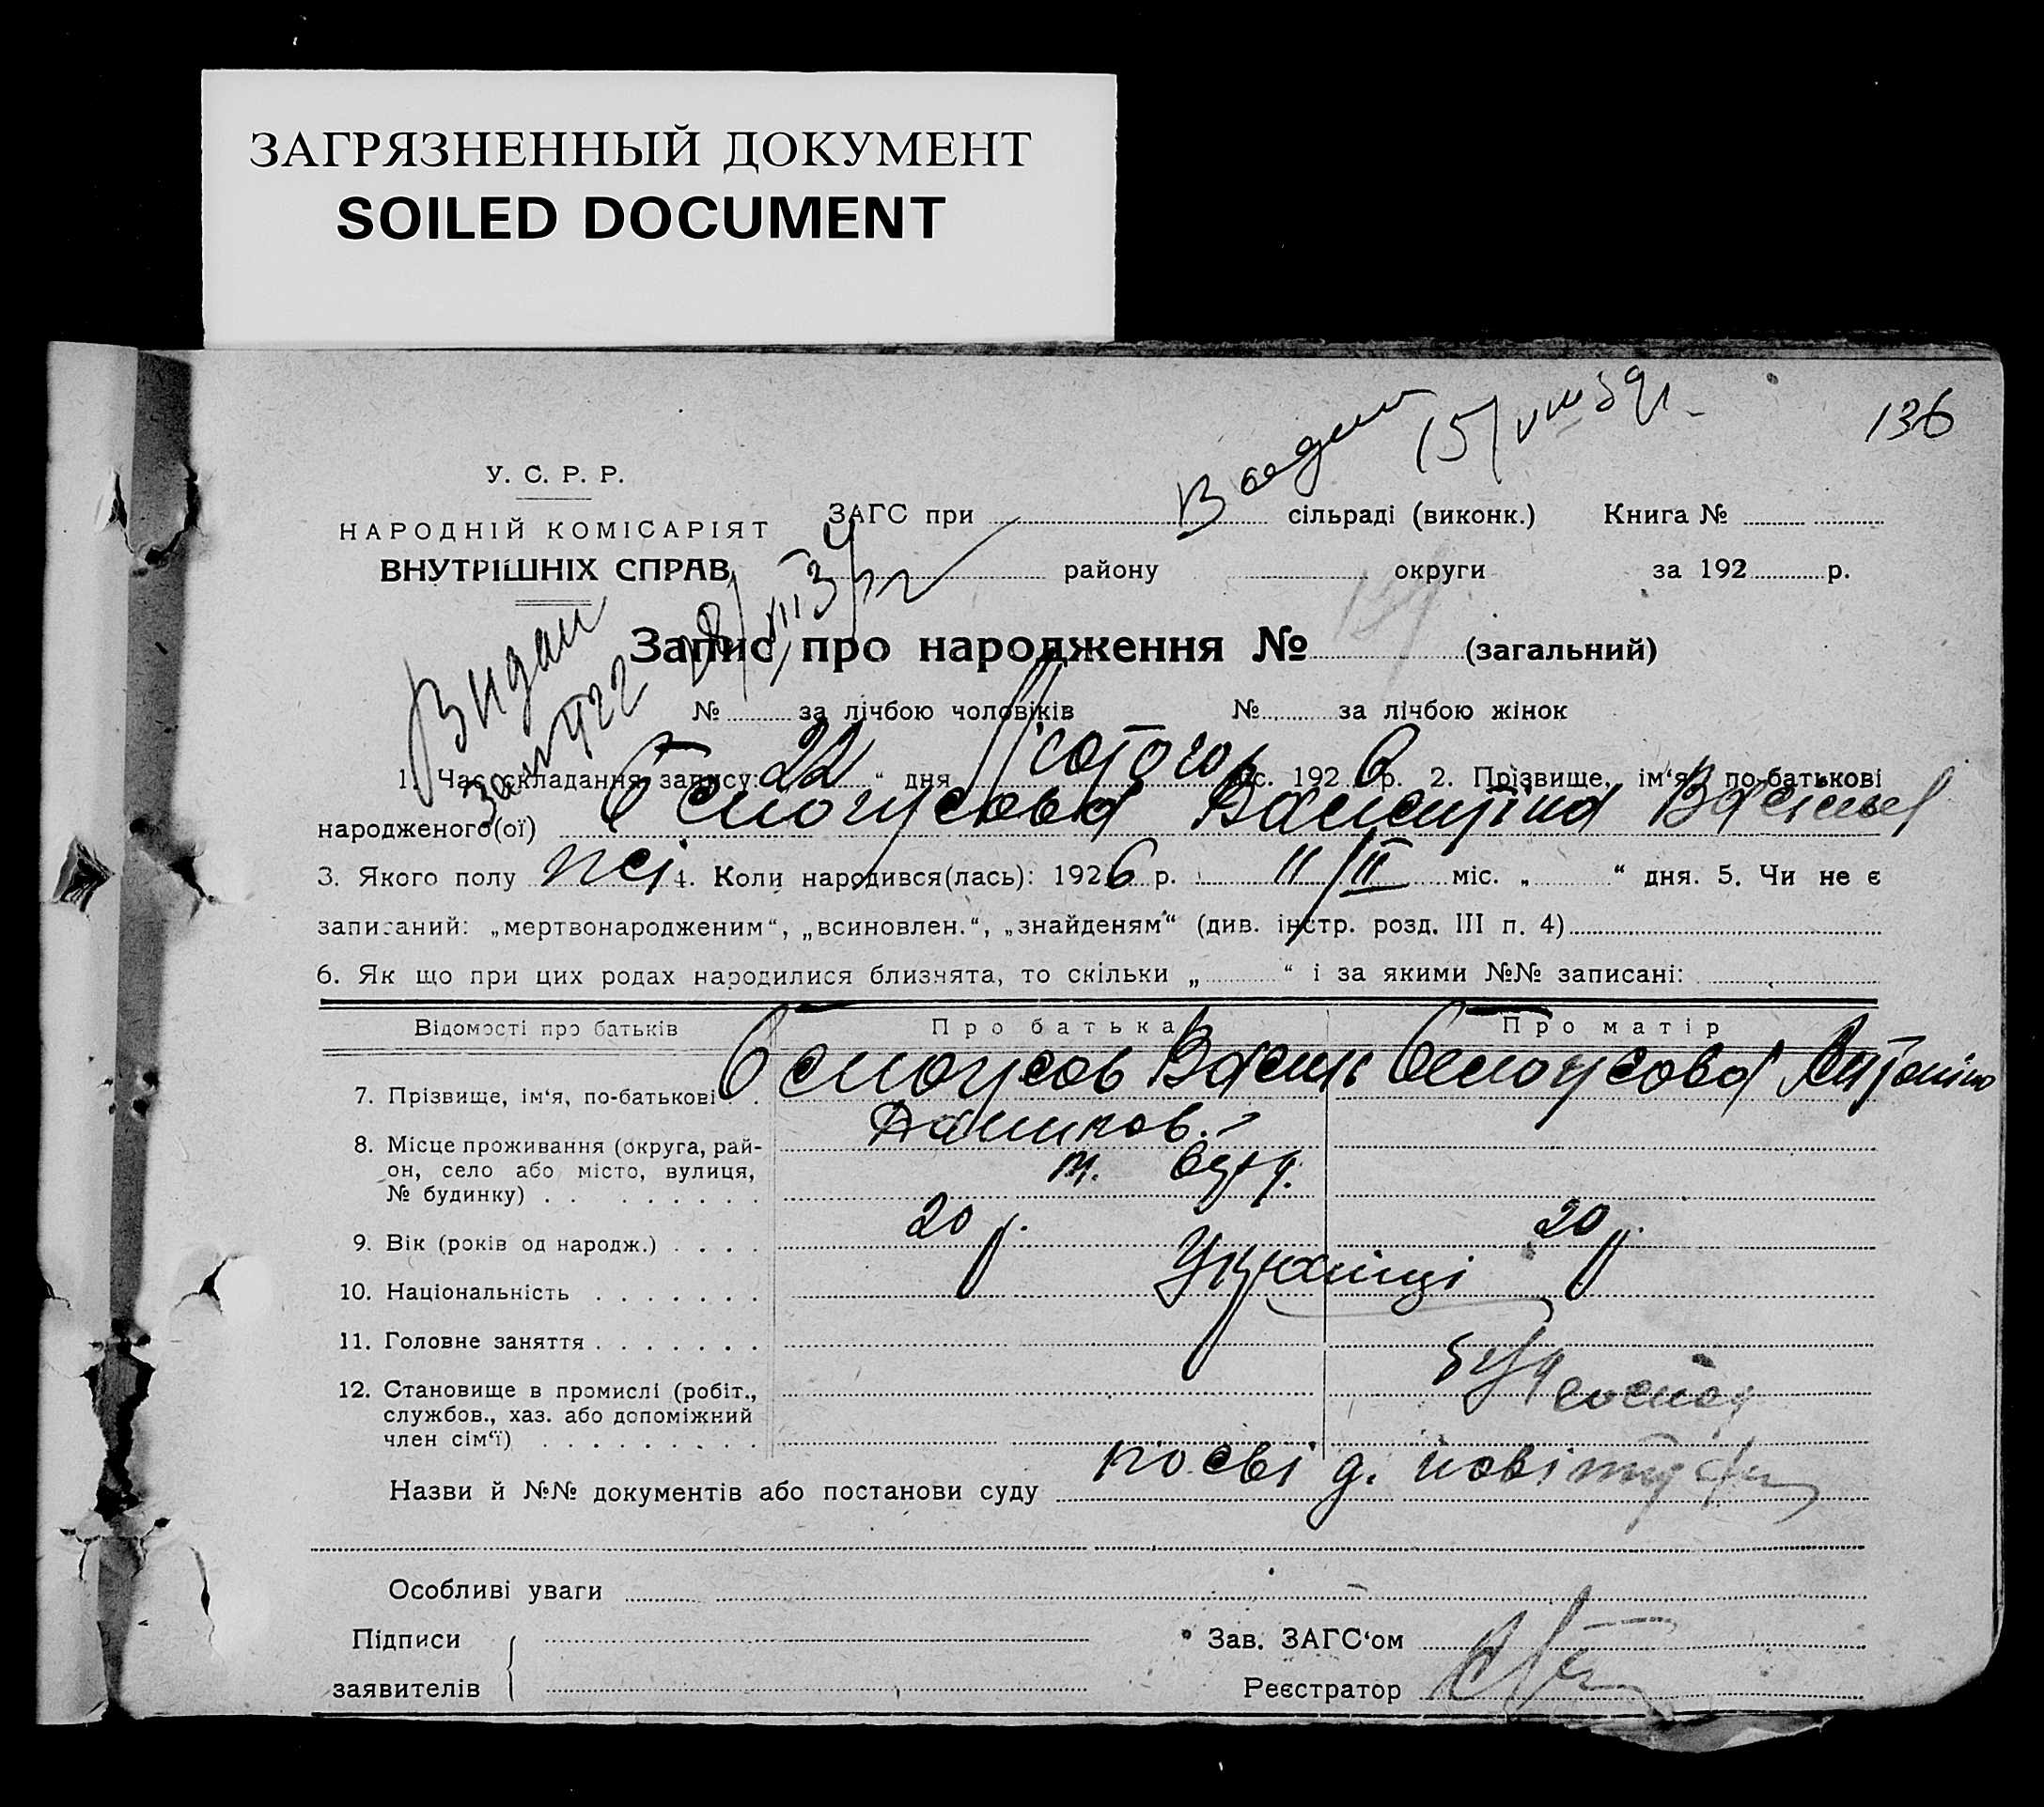 ЗАГРЯЗНЕННЫЙ ДОКУМЕНТ
SOILED DOCUMENT
136
15/VIII 59 г.
У. С. Р. Р.
НАРОДНІЙ КОМІСАРІЯТ
ВНУТРІШНІХ СПРАВ
ЗАГС при сільраді (виконк.) Книга №
району округи за 192 р.
Видан
Запис про народження № (загальний)
№ за лічбою чоловіків № за лічбою жінок
1. Час складання запису: 22 “ дня Лютого міс. 1926 р. 2. Прізвище, ім‘я, по-батькові
народженого(ої) Белоусова Валентіна Васильев
3. Якого полу жі 4. Коли народився(лась): 1926 р. 11/II міс. „ “ дня. 5. Чи не є
записаний: „мертвонародженим“, „всиновлен.“, „знайденям“ (див. інстр. розд. III п. 4)
6. Як що при цих родах народилися близнята, то скільки „ “ і за якими №№ записані:
Відомості про батьків Про батька Про матір
7. Прізвище, ім‘я, по-батькові Белоусов Василь Белоусова Антоніна
8. Місце проживання (округа, рай-
он, село або місто, вулиця,
№ будинку)
9. Вік (років од народж.) 20 р. 20 р.
10. Національність Українці
11. Головне заняття
12. Становище в промислі (робіт.,
службов., хаз. або допоміжний
член сім‘ї)
Назви й №№ документів або постанови суду
Особливі уваги
Підписи
заявителів
Зав. ЗАГС‘ом
Реєстратор